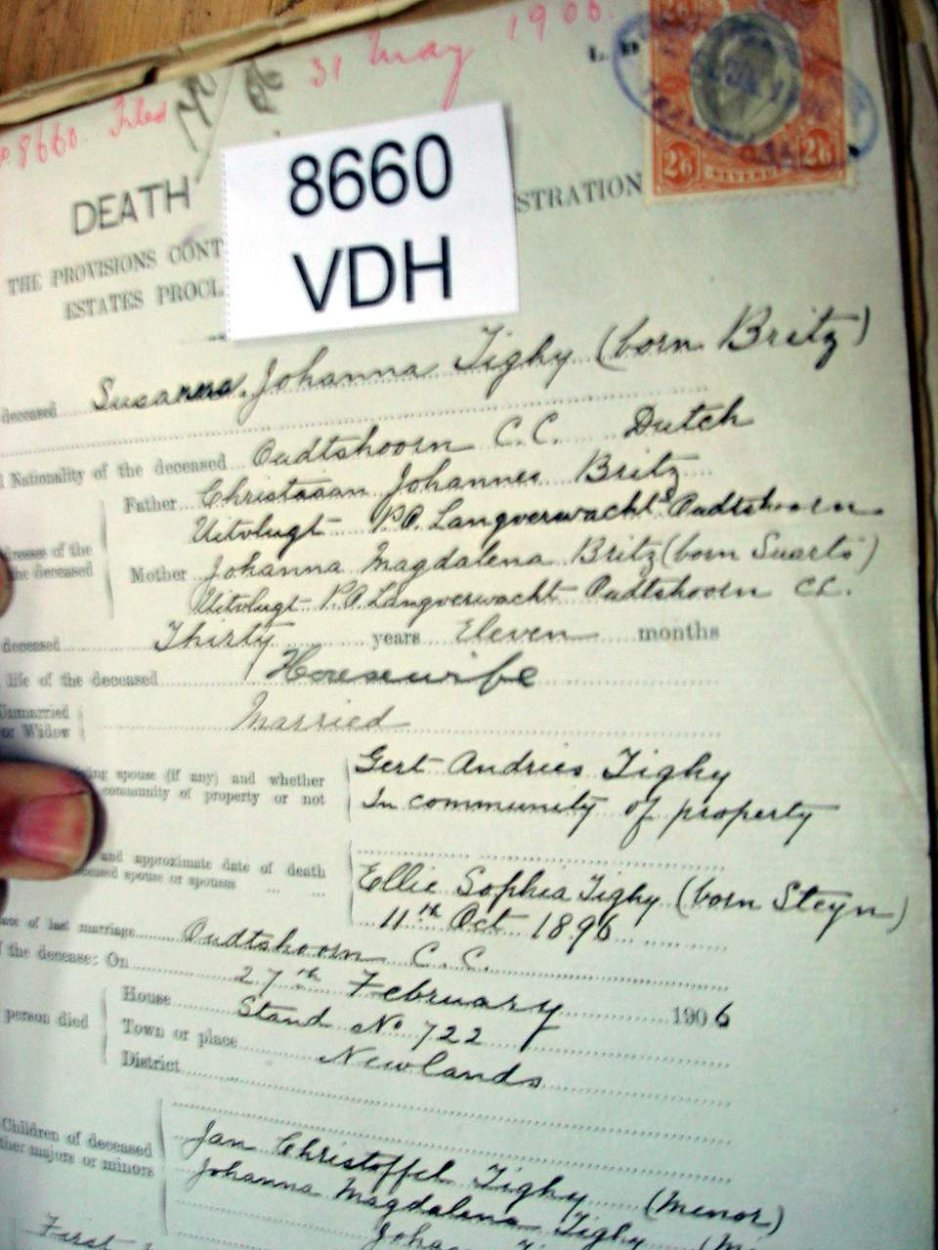 8660 Filed 31 May 1906.
L. D
2/6 2/6
DEATH STRATION
8660
VDH
THE PROVISIONS CONT
ESTATES PROCL
deceased Susanna Johanna Tighy (born Britz)
Nationality of the deceased Oudtshoorn C.C. Dutch
Father Christiaan Johannes Britz
Uitvlugt P.O. Langverwacht Oudtshoorn
resses of the
he deceased
Mother Johanna Magdalena Britz (born Suarts)
Uitvlugt P.O. Langverwacht Oudtshoorn CC.
deceased Thirty years Eleven months
life of the deceased Housewife
Unmarried
or Widow Married
ing spouse (if any) and whether Gert Andries Tighy
community of property or not In community of property
and approximate date of death
ceased spouse or spouses Ellie Sophia Tighy (born Steyn)
11th Oct 1896
ace of last marriage Oudtshoorn C.C.
the decease: On 27th February 1906
person died
House Stand No 722
Town or place Newlands
District
Children of deceased
ther majors or minors
Jan Christoffel Tighy (Minor)
Johanna Magdalena Tighy (Mi
First